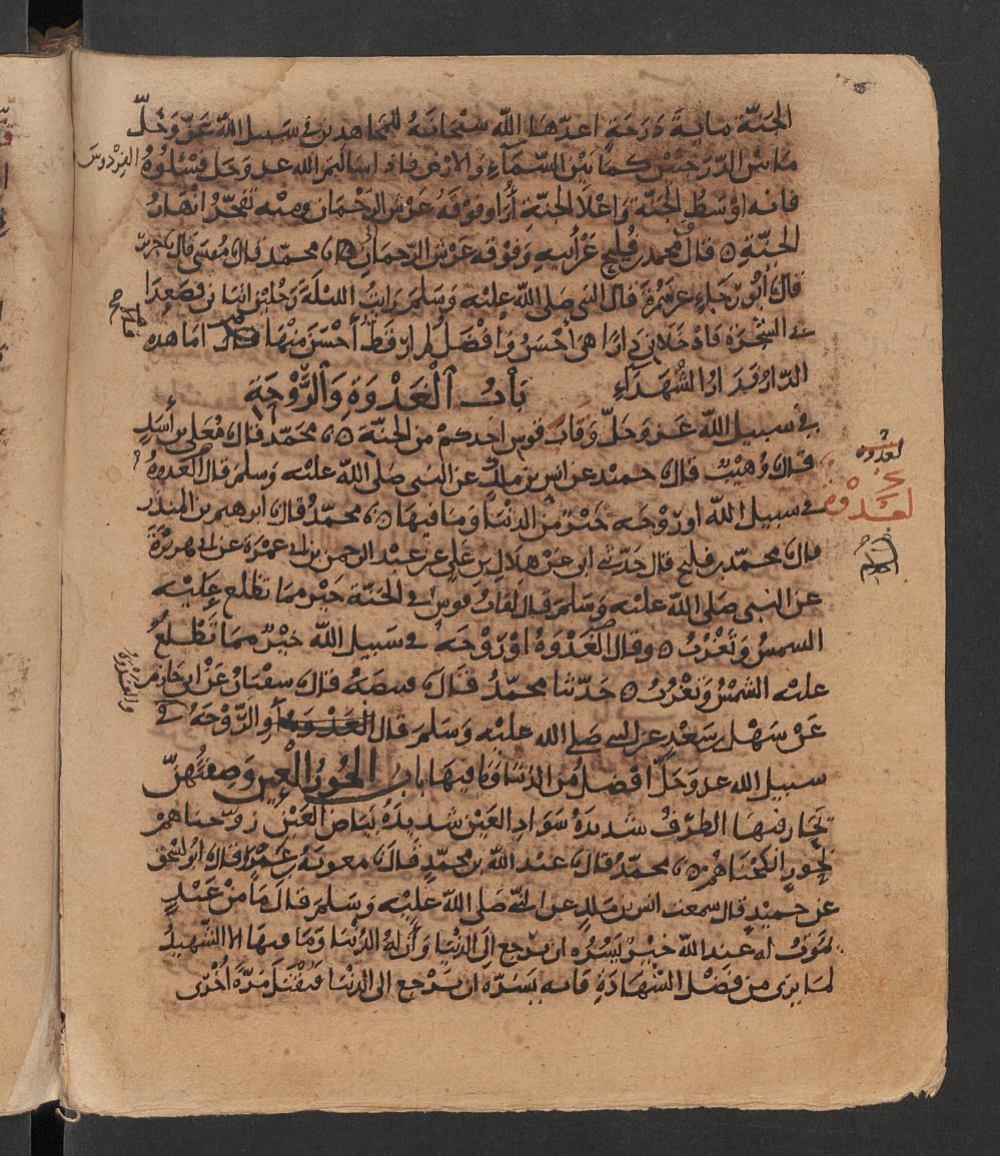 الجنّة ماية درجة اعدّها الله سبحانه للمجاهدين في سبيل الله عزّ وجلّ
ما بين الدّرجتين كما بين السّماء والارض فاذا سالتم الله عز وجل فسلوه الفردوس
فانه اوسط الجنّة واعلا الجنّة أرا وفوقه عرش الرّحمان ومنه تفجّر انهار
الجنّة ٥ قال محمد بن فليح عن ابيه وفوقه عرش الرّحمان ٥ محمّد قال موسى قال جرير
قال أبو رجاء عن سمرة قال النبي صلى الله عليه وسلم رايت الليلة رجلين اتيانى فصعدا
بى الشجرة فادخلانى دارا هى أحسن وافضل لم ار قط أحسن منها اما هذه
الدّار فدار الشّهداء باب الغدوة والرّوحة
في سبيل الله عز وجلّ وقاب قوس احدكم من الجنّة ٥ محمّد قال معلى بن أسد
قال وهيب قال حميد عن انس بن ملك عن النبى صلى الله عليه وسلم قال الغدوة
في سبيل الله او روحه خير من الدنيا وما فيها ٥ محمّد قال ابرهيم بن المنذر
قال محمّد بن فليح قال حدّثنى ابى عن هلال بن على عن عبد الرحمن بن ابى عمرة عن ابى هريرة
عن النبى صلى الله عليه وسلم قال لقاب قوس في الجنّة خير مما تطلع عليه
الشمس وتغرب ٥ وقال الغدوة او روحة في سبيل الله خير مما تطلع
عليه الشمس وتغرب ٥ حدّثنا محمّد قال قبيصة قال سفيان عن ابى حازم
عن سهل بن سعد عن النبى صلى الله عليه وسلم قال الغدوة والرّوحة في
سبيل الله عز وجلّ افضل من الدنيا وما فيها باب الحور العين وصفتهنّ
يحار فيها الطرف شديدة سواد العين شديدة بياض العين زوّجناهم
بحور انكحناهم ٥ محمّد قال عبد الله بن محمّد قال معوية بن عمرو قال ابو اسحق
عن حميد قال سمعت انس بن ملك عن النبى صلى الله عليه وسلم قال ما من عبد
يموت له عند الله خير يسرّه ان يرجع إلى الدنيا وأن له الدنيا وما فيها الا الشهيد
لما يرى من فضل الشهادة فانه يسرّه ان يرجع الى الدنيا فيقتل مرّة أخرى
لغدوه
لغدوة
والغدوة